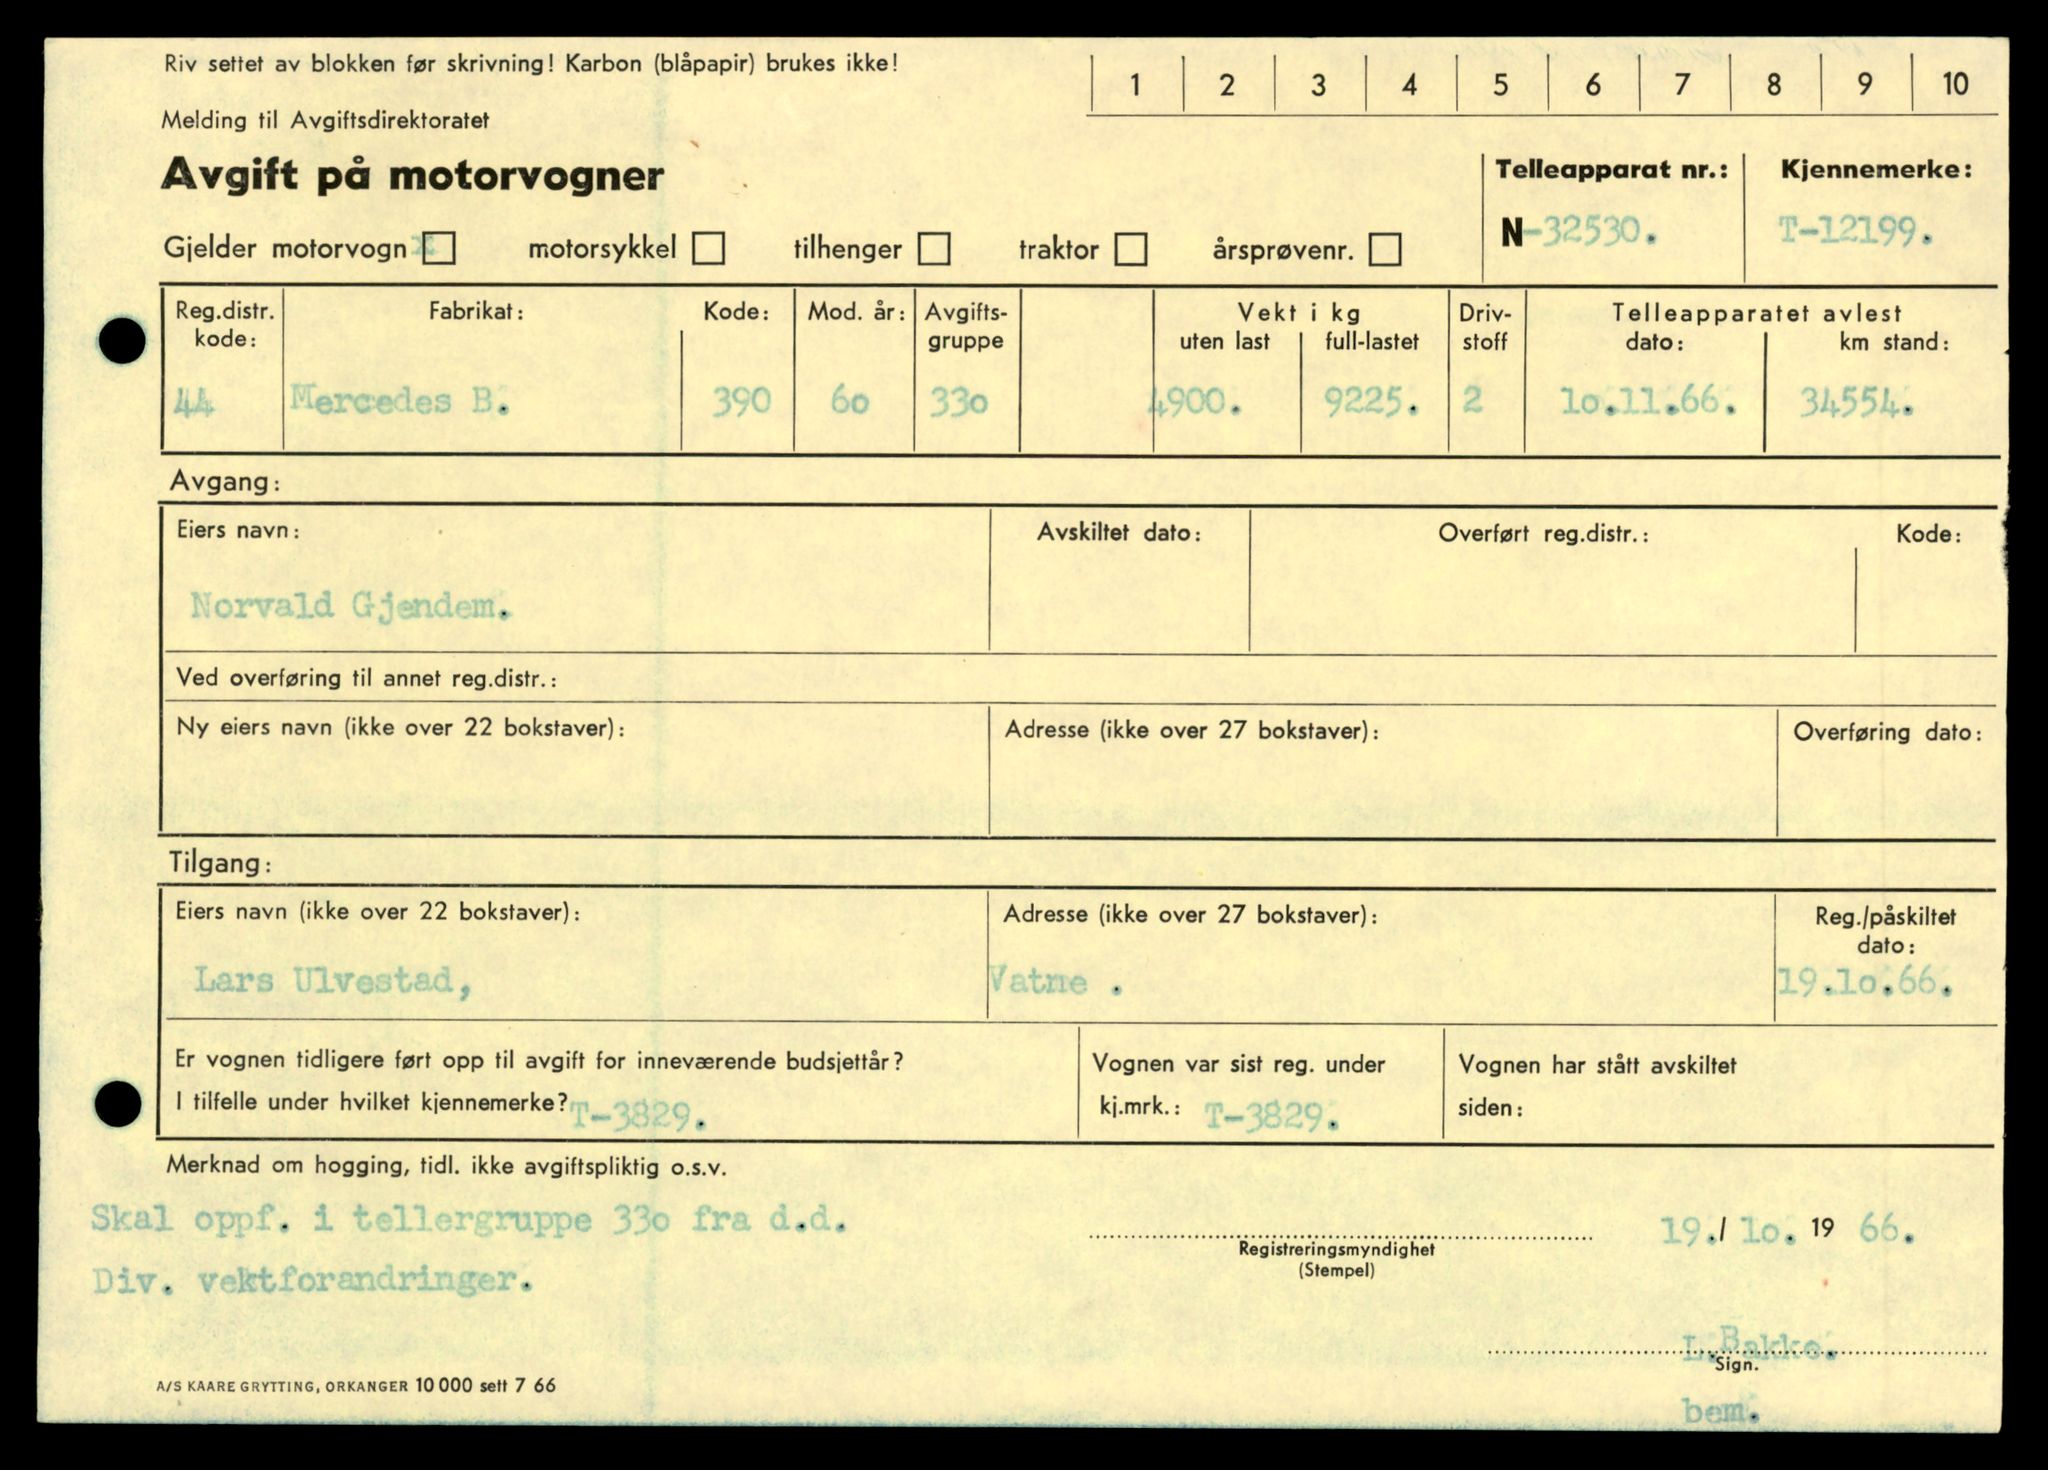 Riv settet av blokken før skrivning! Karbon (blåpapir) brukes ikke!
1 2 3 4 5 6 7 8 9 10
Melding til Avgiftsdirektoratet
Avgift på motorvogner
Telleapparat nr.: Kjennemerke:
N-32530. T-12199.
Gjelder motorvogn x motorsykkel tilhenger traktor årsprøvenr.
Reg.distr. kode: Fabrikat: Kode: Mod. år: Avgifts-gruppe Vekt i kg uten last full-lastet Driv-stoff Telleapparatet avlest dato: km stand:
44 Mercedes B. 390 6o 33o 4900. 9225. 2 1o.11.66. 34554.
Avgang:
Eiers navn: Avskiltet dato: Overført reg.distr.: Kode:
Norvald Gjendem.
Ved overføring til annet reg.distr.:
Ny eiers navn (ikke over 22 bokstaver): Adresse (ikke over 27 bokstaver): Overføring dato:
Tilgang:
Eiers navn (ikke over 22 bokstaver): Adresse (ikke over 27 bokstaver): Reg./påskiltet dato:
Lars Ulvestad, Vatne . 19.1o.66.
Er vognen tidligere ført opp til avgift for inneværende budsjettår? Vognen var sist reg. under Vognen har stått avskiltet
I tilfelle under hvilket kjennemerke? T-3829. kj.mrk.: T-3829. siden:
Merknad om hogging, tidl. ikke avgiftspliktig o.s.v.
Skal oppf. i tellergruppe 33o fra d.d.
19./ 1o. 19 66.
Registreringsmyndighet
(Stempel)
Div. vektforandringer.
L.Bakke.
Sign.
bem.
A/S KAARE GRYTTING, ORKANGER 10 000 sett 7 66